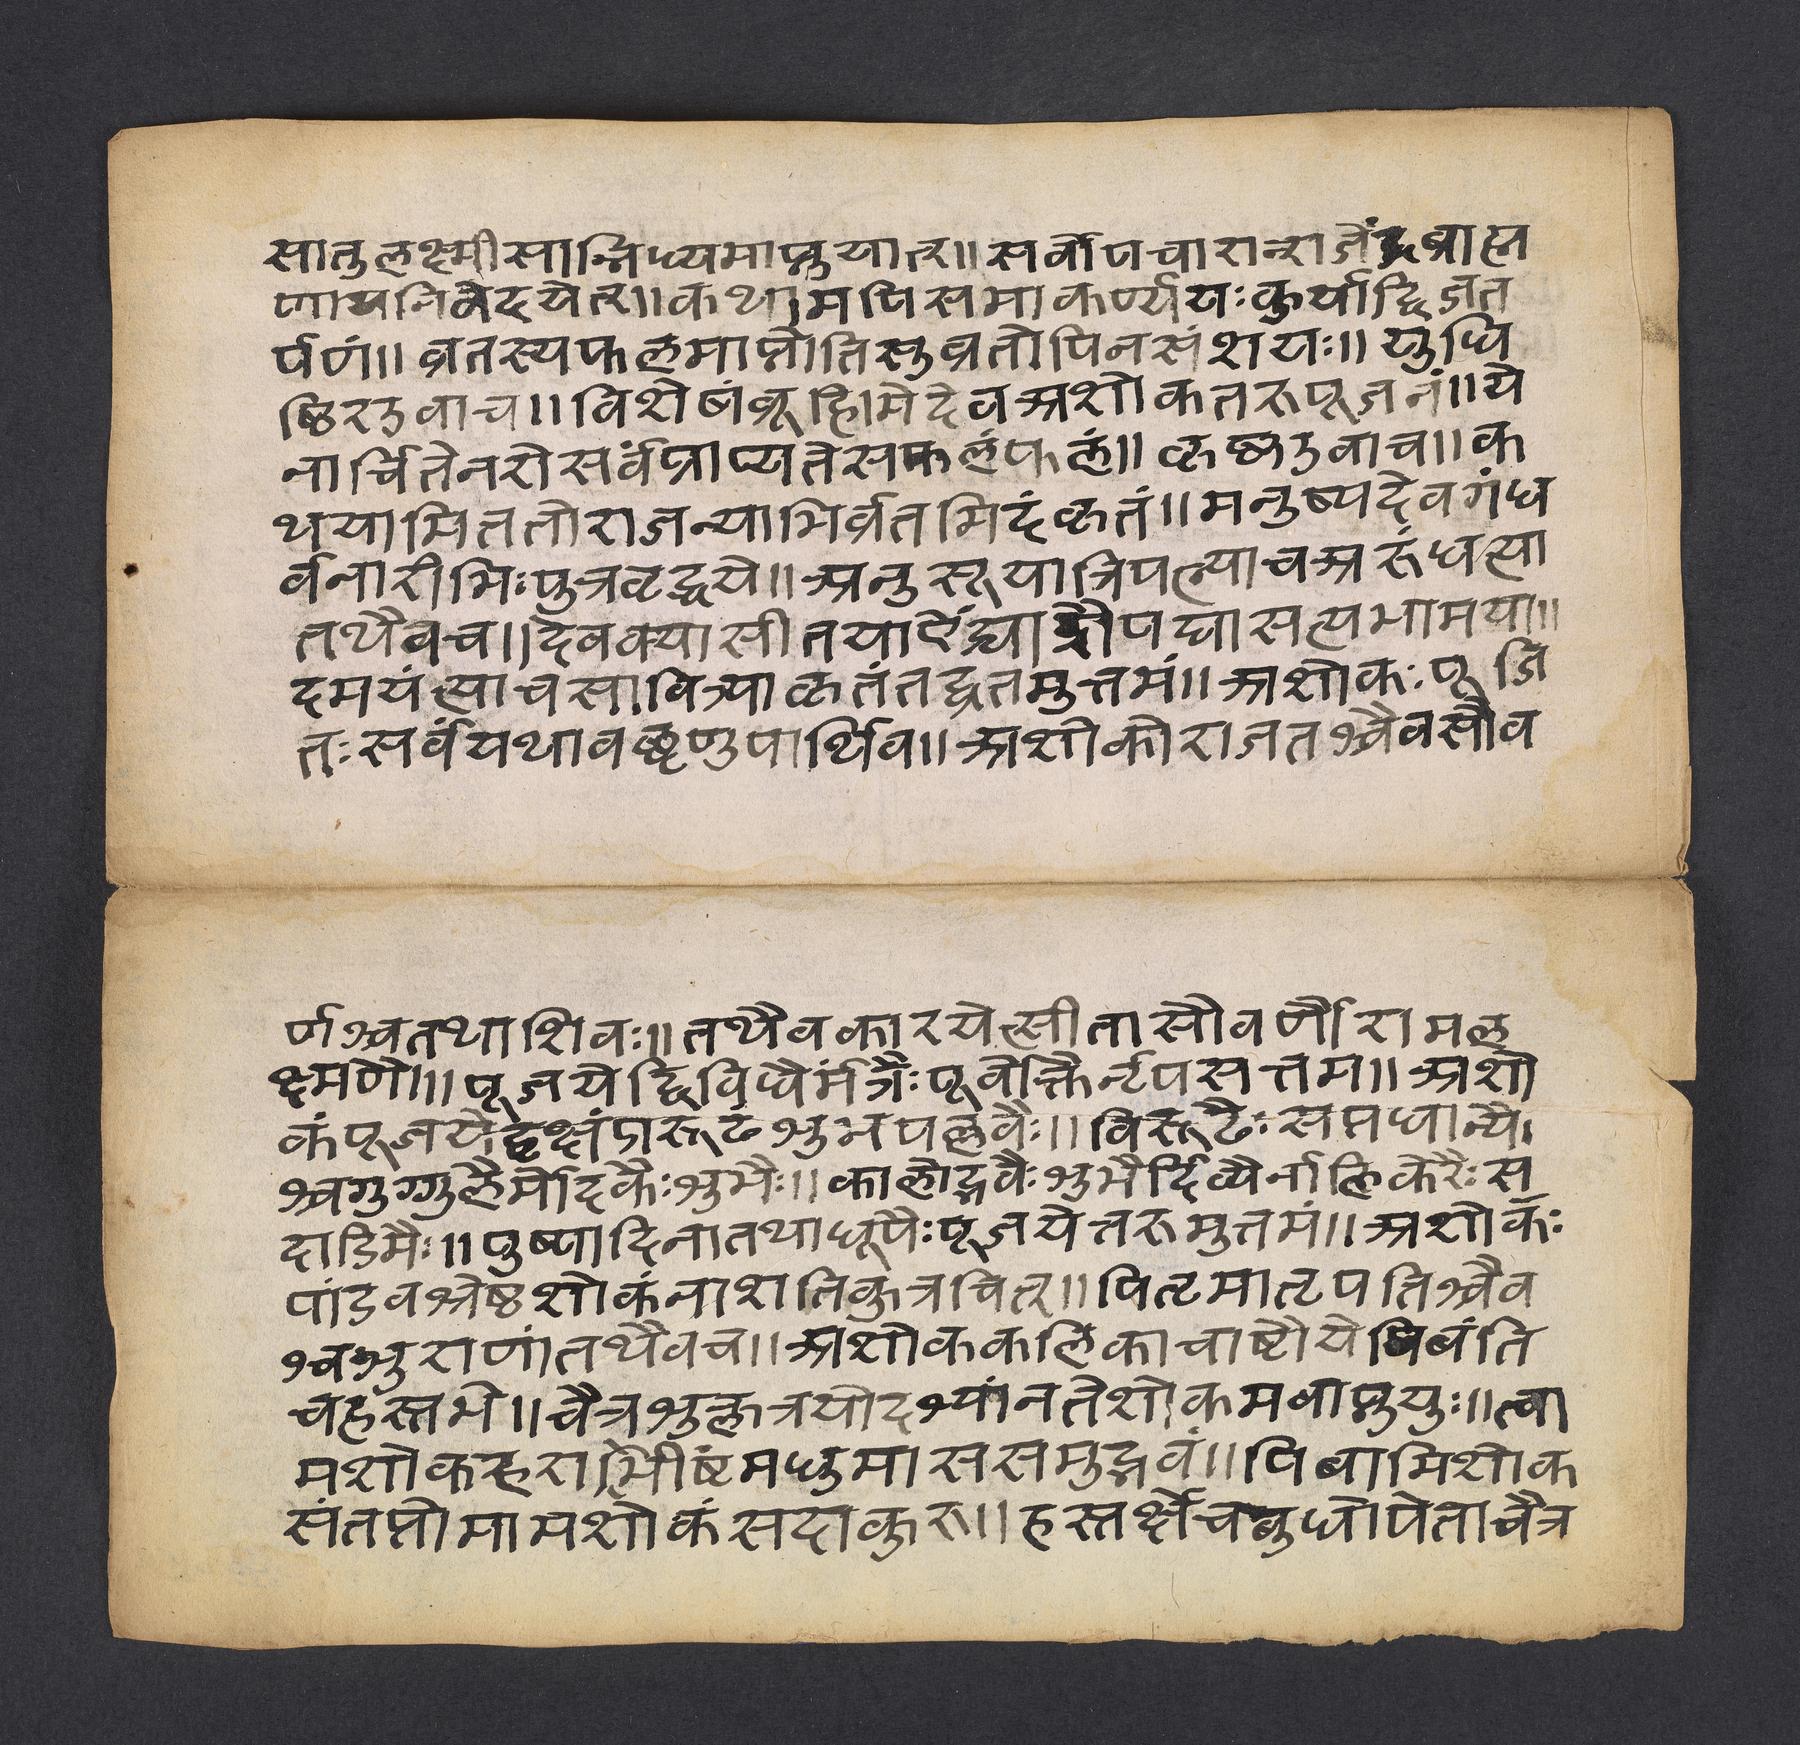 सातुलक्ष्मीसान्निध्यमाप्नुयात्॥सर्वोपचारान्राजेंद्रब्राह्म
णायनिवेदयेत्॥कथामपिसमाकर्ण्ययःकुर्याद्द्विजत
र्पणं॥व्रतस्यफलमाप्नोतिसुव्रतोपिनसंशयः॥युधि
ष्ठिरउवाच॥विशेषंब्रूहिमेदेवअशोकतरुपूजनं॥ये
नार्चितेनरोसर्वंप्राप्यतेसफलंफलं॥कृष्णउवाच॥क
थयामिततोराजन्याभिर्व्रतमिदंकृतं॥मनुष्यदेवगंध
र्वनारीभिःपुत्रवृद्धये॥अनुसूयात्रिपत्न्याचअरुंधत्या
तथैवच॥देवक्यासीतयाऐंद्र्याद्रौपद्यासत्यभामया॥
दमयंत्याचसावित्र्याकृतंतद्व्रतमुत्तमं॥अशोकःपूजि
तःसर्वंयथावच्छृणुपार्थिव॥अशोकोराजतश्चैवसौव
र्णश्चतथाशिवः॥तथैवकारयेत्सीतासौवर्णौरामल
क्ष्मणौ॥पूजयेद्विविधैर्मंत्रैःपूर्वोक्तैर्नृपसत्तम॥अशो
कंपूजयेद्वृक्षंप्ररूढंशुभपल्लवैः॥विरूढैःसप्तधान्यै
श्चगुग्गुलैर्मोदकैःशुभैः॥कालोद्भवैःशुभैर्दिव्यैर्नालिकेरैःस
दाडिमैः॥पुष्पादिनातथाधूपैःपूजयेत्तरुमुत्तमं॥अशोकः
पांडवश्रेष्ठशोकंनाशतिकुत्रचित्॥पितृमातृपतिश्चैव
श्वश्रुराणांतथैवच॥अशोककलिकाचाष्टौयेपिबंति
चहस्तभे॥चैत्रशुक्लत्रयोदश्यांनतेशोकमवाप्नुयुः॥त्वा
मशोकहराभीष्टंमधुमाससमुद्भवं॥पिबामिशोक
संतप्तोमामशोकंसदाकुरु॥हस्तर्क्षेचबुधोपेताचैत्र